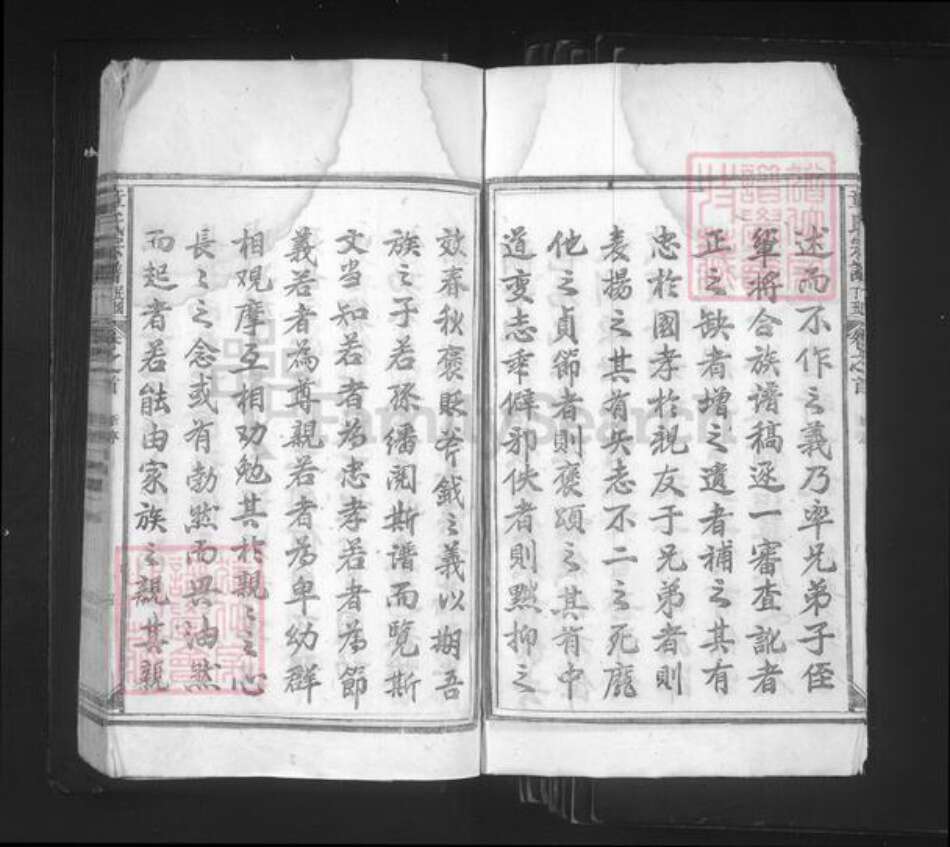 述而不作之義乃率兄弟子侄
輩將合族譜稿逐一審查訛者
正之缺者增之遺者補之其有
忠於國孝於親友于兄弟者則
表揚之其有矢志不二之死靡
他之貞節者則褒頌之其有中
道变志乖僻邪佚者則黙抑之
效春秋褒贬斧鉞之義以期吾
族之子若孫繙阅斯谱而覽斯
文当知若者為忠孝若者為節
義若者為尊親若者為卑幼群
相观摩互相劝勉其於親之之心
長之之念或有勃然而興油然
而起者若能由家族之親其親
FamilySearch